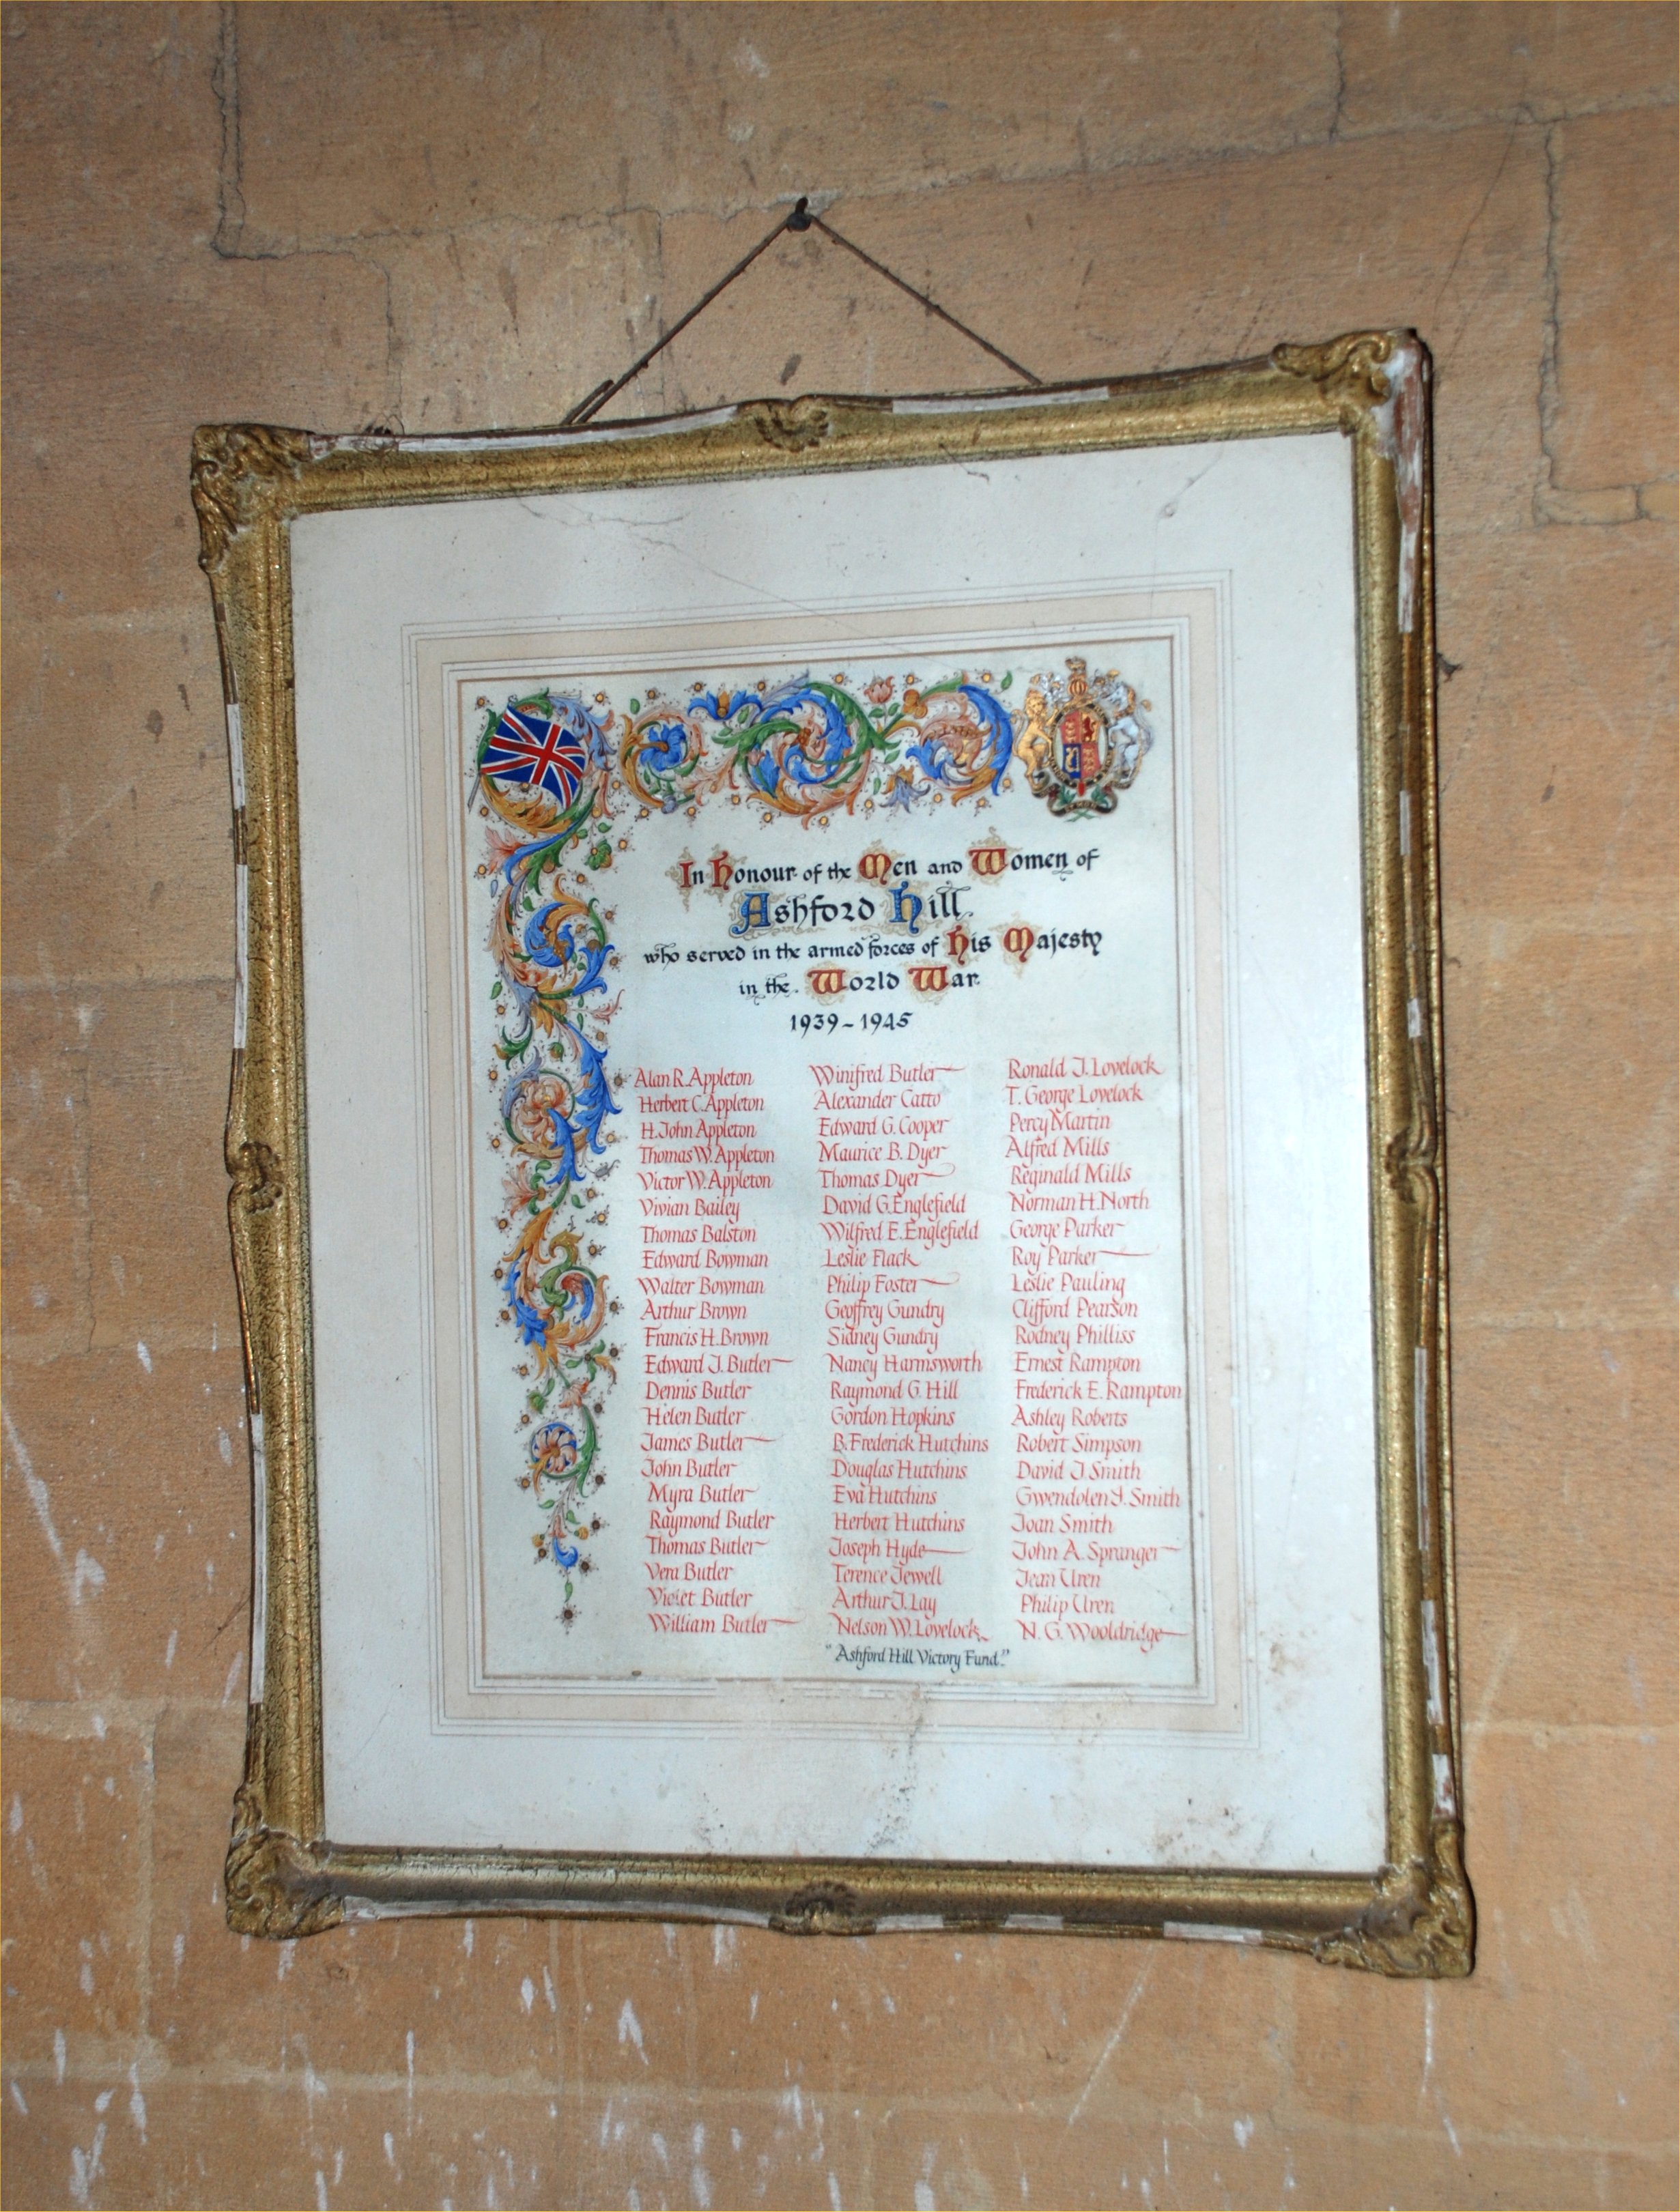 In Honour of the Men and Women of
Ashford Hill
who served in the armed forces of His Majesty
in the World War
1939-1945
Alan R. Appleton
Herbert C. Appleton
H. John Appleton
Thomas W. Appleton
Victor W. Appleton
Vivian Bailey
Thomas Balston
Edward Bowman
Walter Bowman
Arthur Brown
Francis H. Brown
Edward J. Butler
Dennis Butler
Helen Butler
James Butler
John Butler
Myra Butler
Raymond Butler
Thomas Butler
Vera Butler
Violet Butler
William Butler
Winifred Butler
Alexander Catto
Edward G. Cooper
Maurice B. Dyer
Thomas Dyer
David G. Englefield
Wilfred E. Englefield
Leslie Flack
Philip Foster
Geoffrey Gundry
Sidney Gundry
Nancy Harmsworth
Raymond G. Hill
Gordon Hopkins
B. Frederick Hutchins
Douglas Hutchins
Eva Hutchins
Herbert Hutchins
Joseph Hyde
Terence Jewell
Arthur J. Lay
Nelson W. Lovelock
Ronald J. Lovelock
T. George Lovelock
Percy Martin
Alfred Mills
Reginald Mills
Norman H. North
George Parker
Roy Parker
Leslie Pauling
Clifford Pearson
Rodney Philliss
Ernest Rampton
Frederick E. Rampton
Ashley Roberts
Robert Simpson
David J. Smith
Gwendolen Smith
Joan Smith
John A. Spranger
Jean Uren
Philip Uren
N. G. Wooldridge
"Ashford Hill Victory Fund."